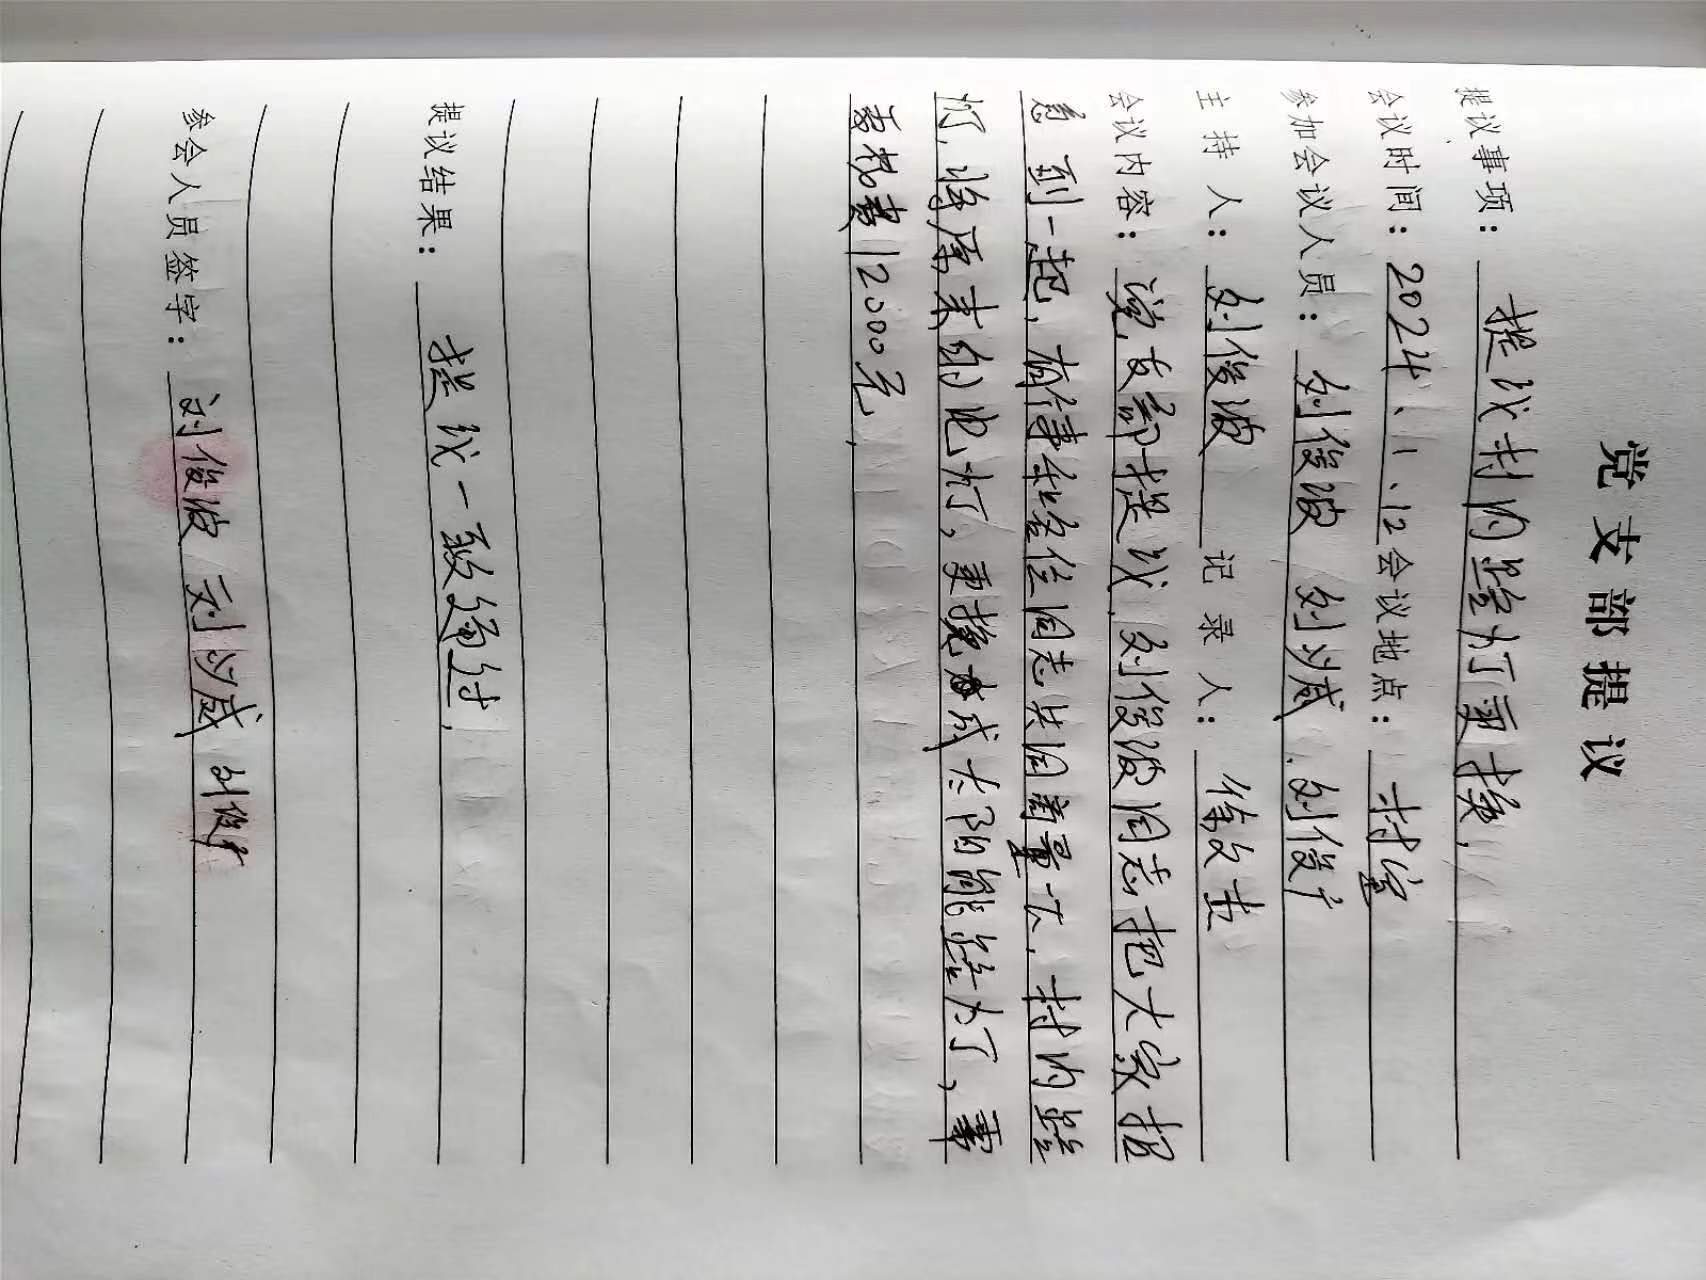 党支部提议
提议事项：提议村内路灯更换，
会议时间：2024.1.12 会议地点：村室
参加会议人员：刘俊波 刘以威、刘俊广
主持人：刘俊波 记录人：徐文杰
会议内容：党支部提议，刘俊波同志把大家招
急到一起，有件事和各位同志共同商量一下，村内路
灯，将原来的电灯，更换成太阳能路灯，需
要花费12000元，
提议结果：提议一致通过，
参会人员签字：刘俊波 刘以威 刘俊广